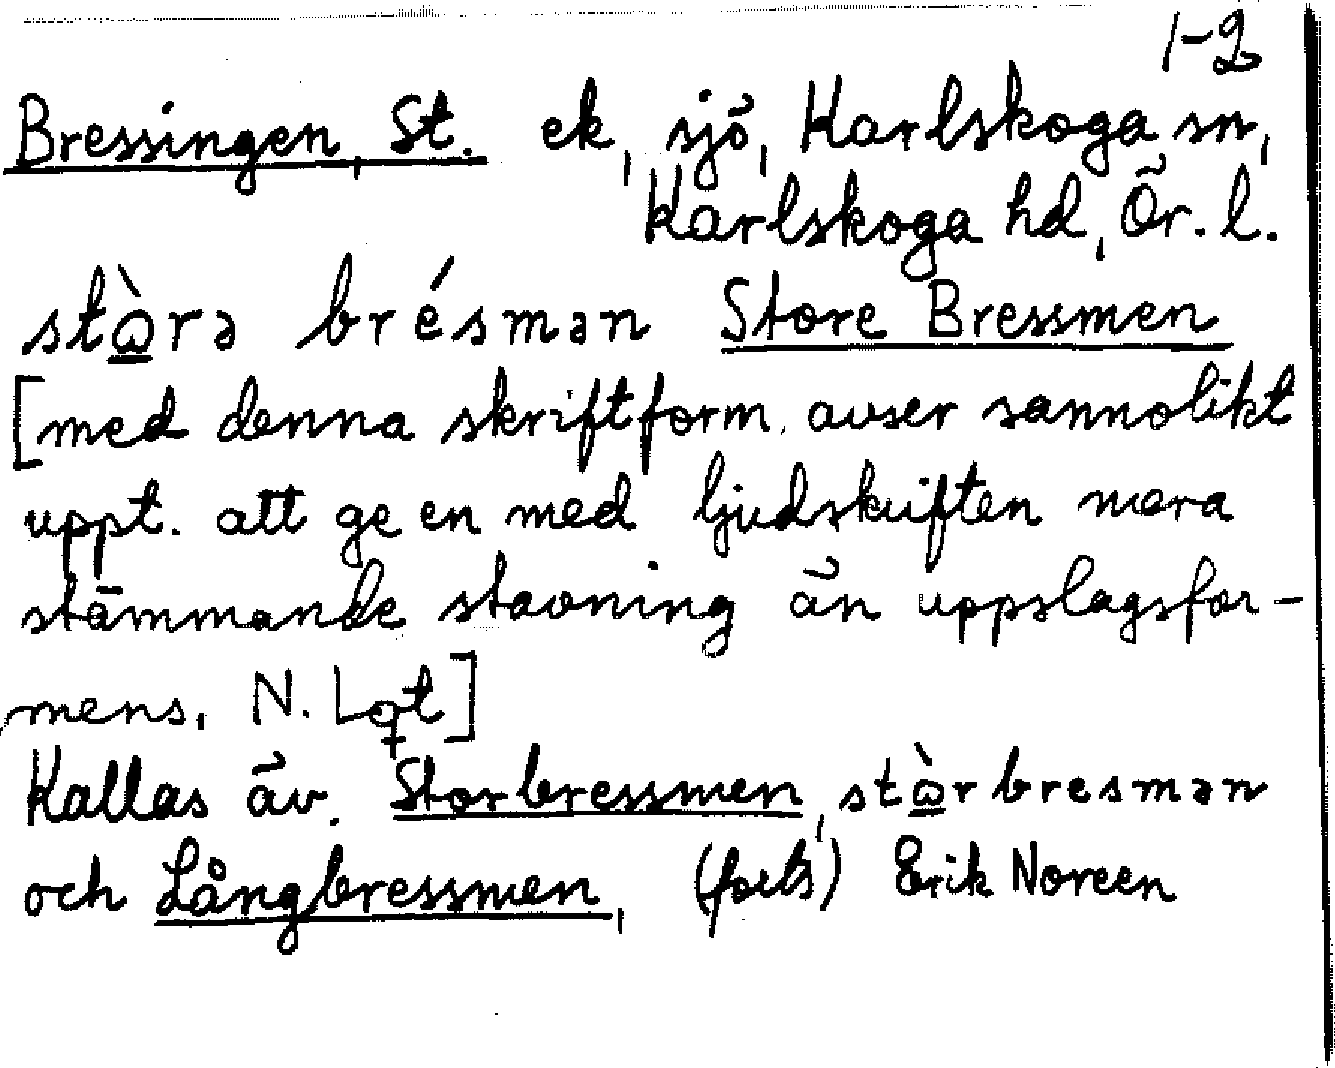 1-2
Bressingen, St. ek, sjö, Karlskoga sn,
Karlskoga hd, Ör. l.
stὼrə brésmən Store Bressmen
[med denna skriftform avser sannolikt
uppt. att ge en med ljudskriften mera
stämmande stavning än uppslagsfor-
mens, N. L t]
Kallas äv. Storbressmen, stὼrbresmən
och Långbressmen, (forts) Erik Noreen